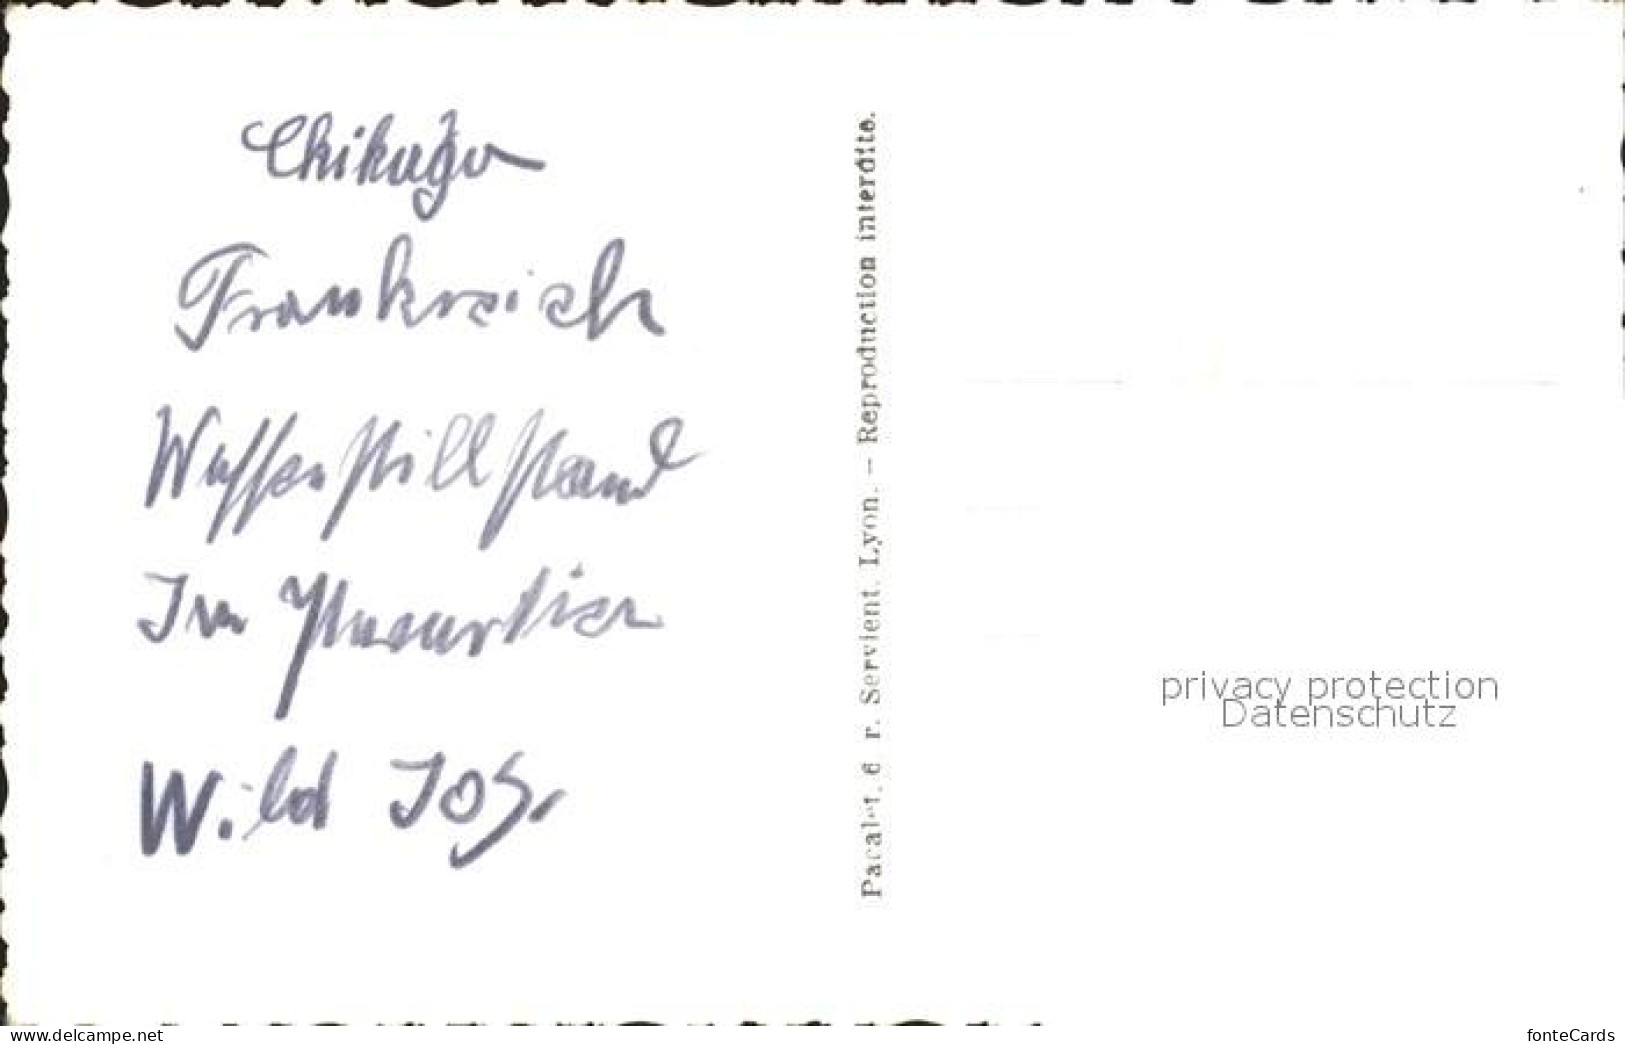 Chikago
Frankreich
Waffenstillstand
Im
Wild Jos.
Pacalet. 6 r. Servient. Lyon. – Reproduction interdite.
privacy protection
Datenschutz
www.ansichtskarten-center.de
fonteCards